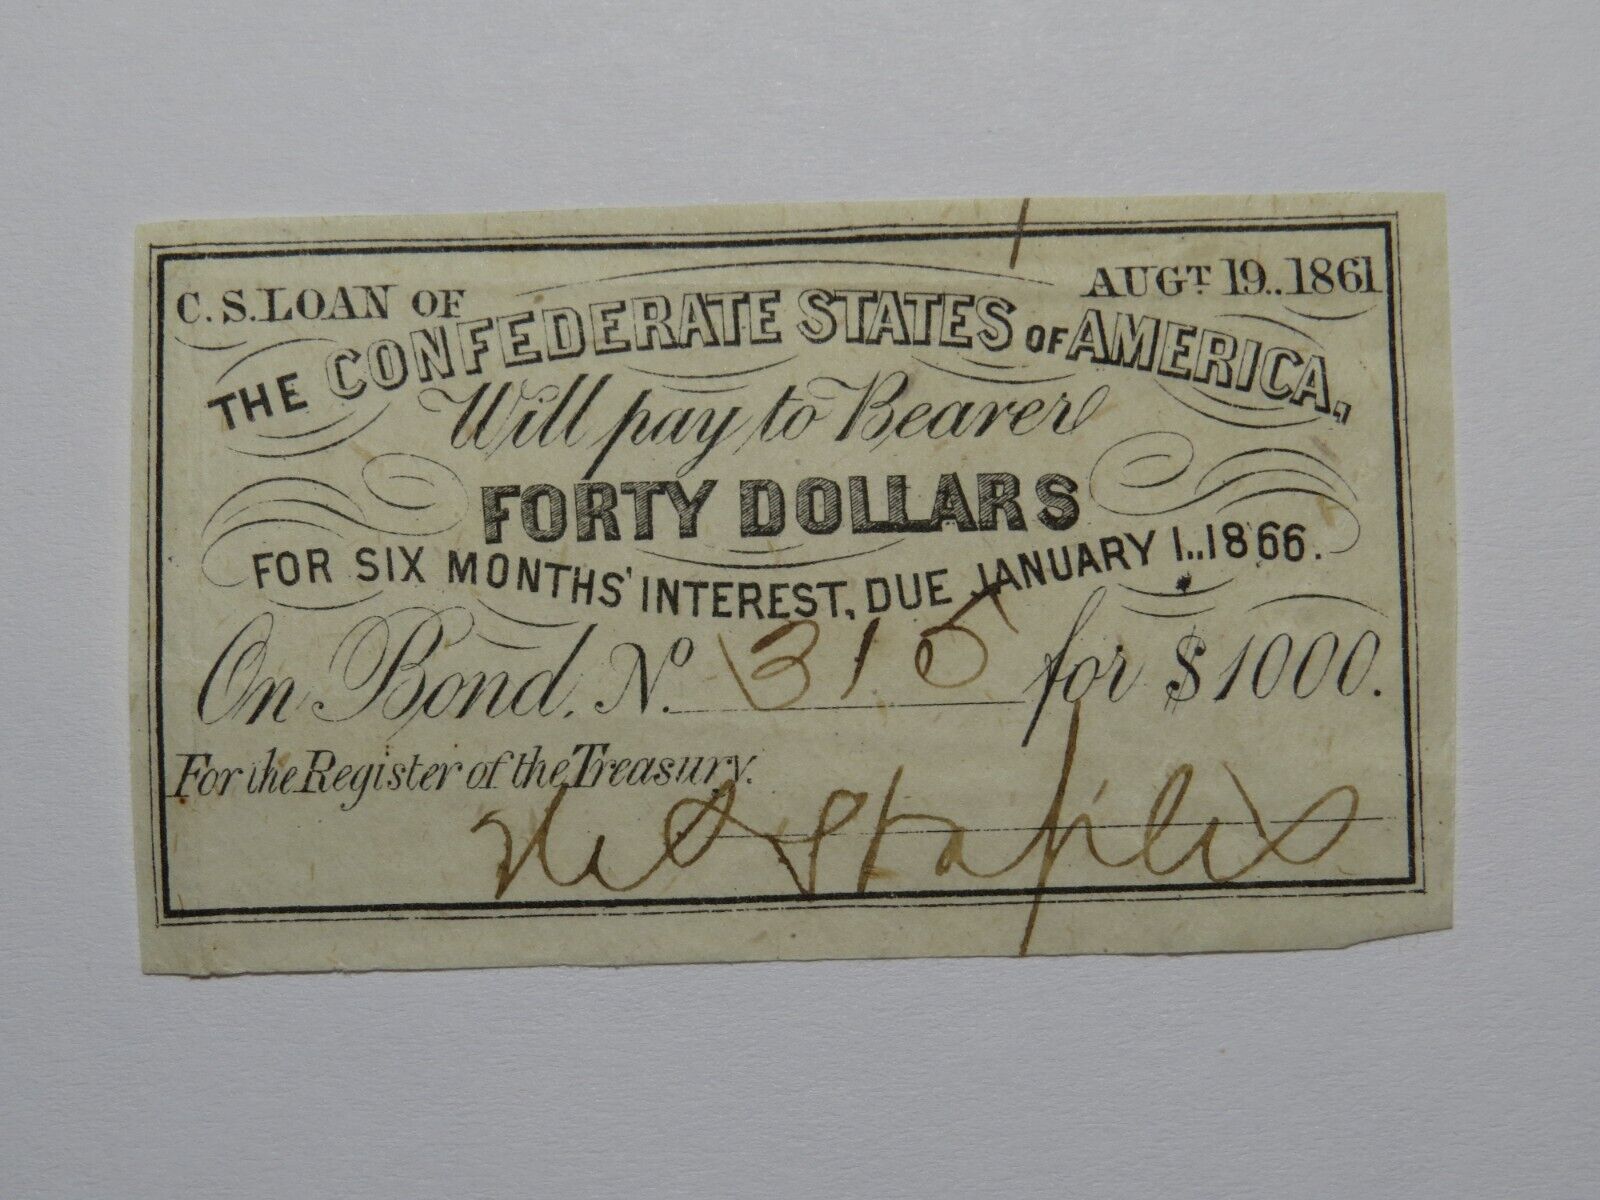 C. S. LOAN OF AUGT 19..1861
THE CONFEDERATE STATES OF AMERICA,
Will pay to Bearer
FORTY DOLLARS
FOR SIX MONTHS' INTEREST, DUE JANUARY 1..1866.
On Bond, No. 1315 for $1000.
For the Register of the Treasury.
Staples